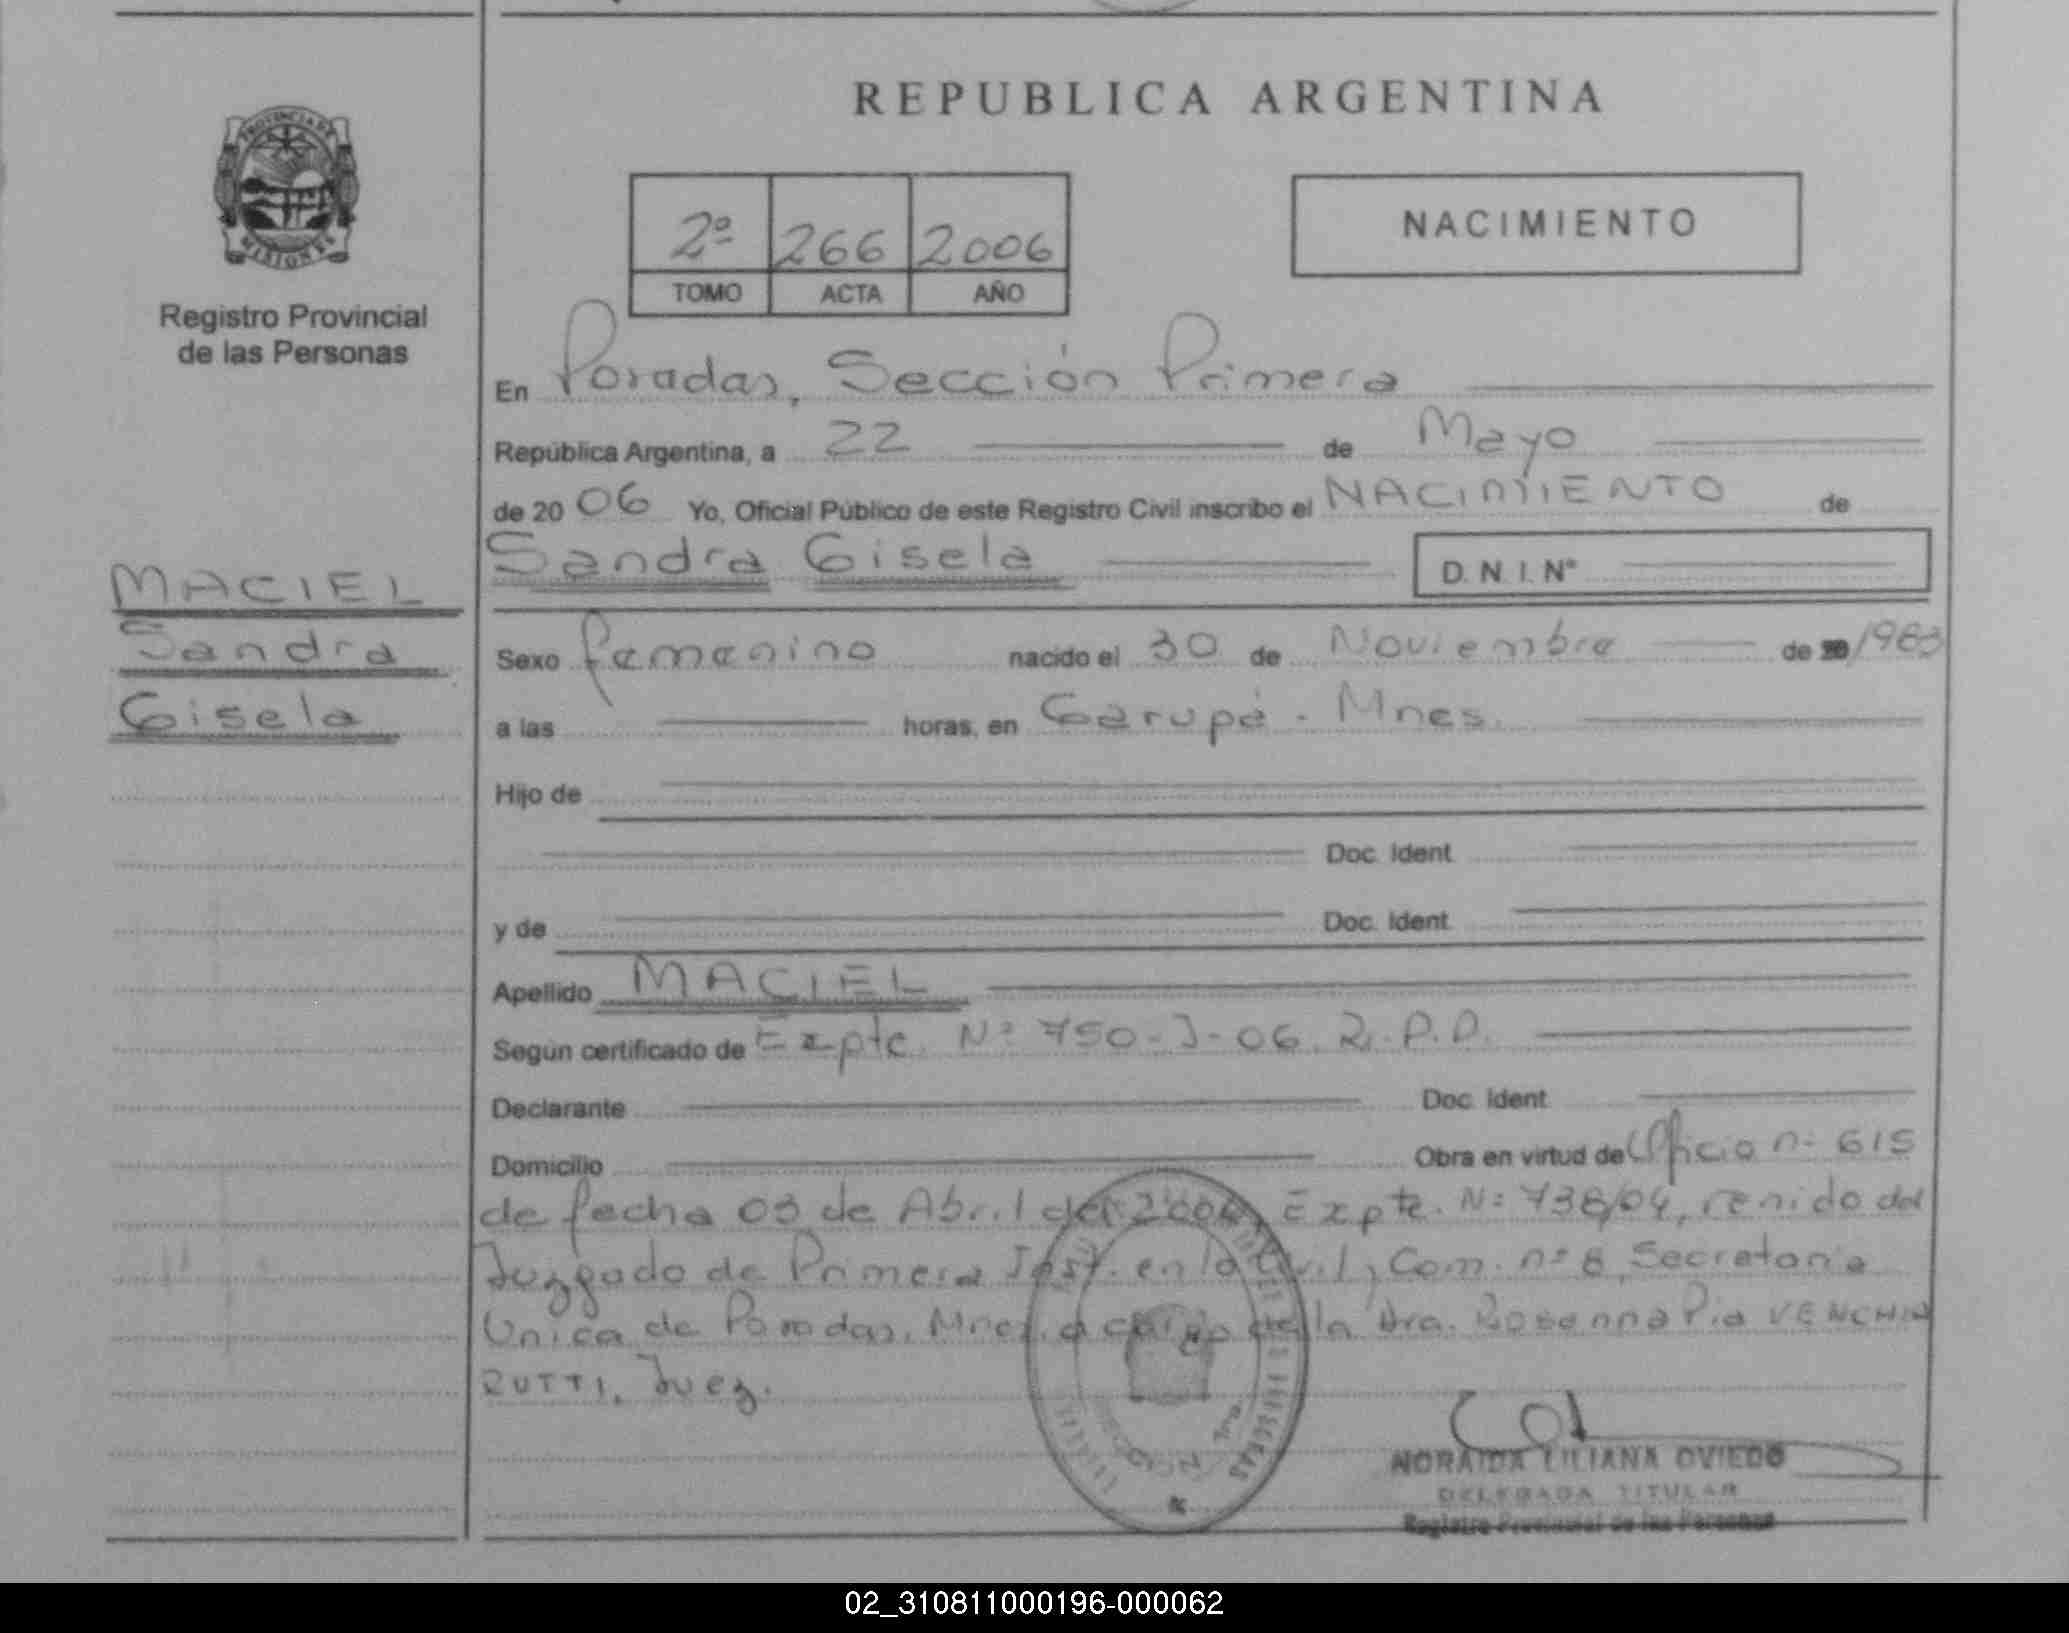 REPUBLICA ARGENTINA
PROVINCIA DE
MISIONES
Registro Provincial
de las Personas
2º 266 2006
TOMO ACTA AÑO
NACIMIENTO
En Posadas, Sección Primera
República Argentina, a 22 de Mayo
de 2006 Yo, Oficial Público de este Registro Civil inscribo el NACIMIENTO de
Sandra Gisela D.N.I. Nº
MACIEL
Sandra
Gisela
Sexo femenino nacido el 30 de Noviembre de 1983
a las horas, en Garupá - Mnes.
Hijo de
Doc. Ident.
y de Doc. Ident.
Apellido MACIEL
Según certificado de Expte. Nº 750-J-06. R.P.P.
Declarante Doc. Ident.
Domicilio Obra en virtud de Oficio nº 615
de fecha 03 de Abril del Expte. Nº 738/04, del
Juzgado de Primera Inst. en lo Civil y Com. nº 8 Secretaria
Unica de Posadas, Mnes. a cargo de la Dra. Rosanna Pia VENCHIA
RUTTI, Juez.
NORAIDA LILIANA OVIEDO
DELEGADA TITULAR
Registro Provincial de las Personas
02_310811000196-000062